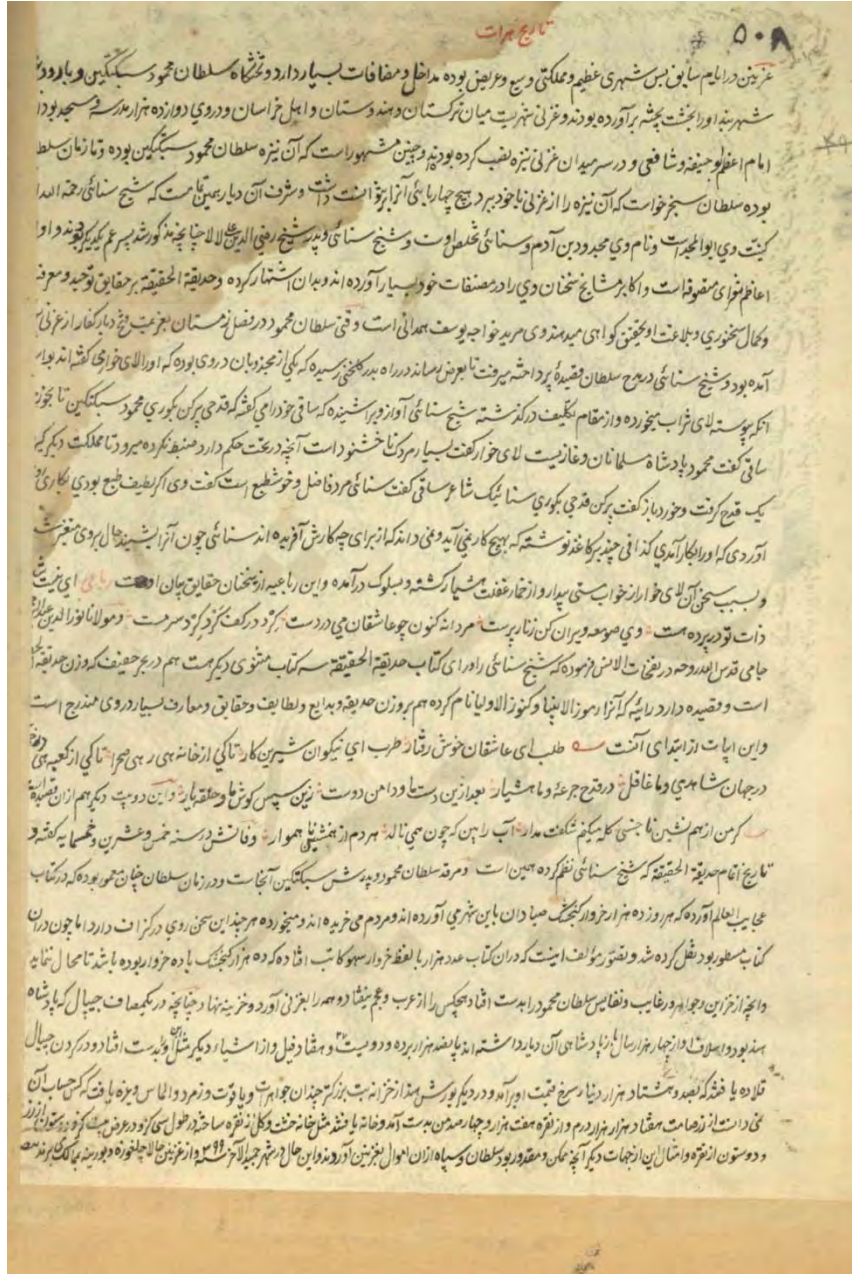 تاریخ هرات
۵۰۸
غزنین در ایام سابق بس شهری عظیم و مملکتی وسیع و عریض بوده مداخل و مضافات بسیار دارد و تختگاه سلطان محمود سبکتکین و بارو و
شهربند او را بخشت پخته برآورده بودند و غزنی شهریست میان ترکستان و هندوستان و اهل خراسان و در وی دوازده هزار مدرسه و مسجد بود
امام اعظم ابو حنیفه و شافعی و در سر میدان غزنی نیزه نصب کرده بودند و چنین مشهور است که آن نیزه سلطان محمود سبکتکین بوده و تا زمان سلطا
بوده سلطان سنجر خواست که آن نیزه را از غزنی با خود ببرد هیچ چهارپایی آنرا بر نتوانست داشت و شرف آن دیار همین تمامست که شیخ سنائی رحمة الله
کنیت وی ابوالمجد است و نام وی مجدود بن آدم و سنائی تخلص اوست و شیخ سنائی و پدر شیخ رضی الدین علی لالا چنانچه مذکور شد پسر عم یکدیگر بودند و او از
اعاظم شعرای متصوفه است و اکابر مشایخ سخنان وی را در مصنفات خود بسیار آورده اند و بدان استشهار کرده و حدیقة الحقیقة بر حقایق توحید و معرفت
و کمال سخنوری و بلاغت او بتحقیق گواهی میدهند وی مرید خواجه یوسف همدانی است وقتی سلطان محمود در فصل زمستان بعزیمت فتح دیار کفار از غزنی بیرون
آمده بود و شیخ سنائی در مدح سلطان قصیدهٔ پرداخته میرفت تا بعرض رساند در راه بدر گلخنی رسیده که یکی از مجذوبان در وی بوده که او را لای خوار می گفته اند بواسطه
آنکه پیوسته لای شراب میخورده و از مقام تکلیف در گذشته شیخ سنائی آواز ویرا شنیده که ساقی خود را می گفته که قدحی پر کن بکوری محمود سبکتکین تا بخورم
ساقی گفت محمود پادشاه مسلمانان و غازیست لای خوار گفت بسیار مردک ناخشنود است آنچه در تحت حکم دارد ضبط نکرده میرود تا مملکت دیگر گیرد
یک قدح گرفت و خورد باز گفت پر کن قدحی بکوری سنائیک شاعر ساقی گفت سنائی مرد فاضل و خوش طبع است گفت وی اگر لطیف طبع بودی بکاری
آوردی که او را بکار آمدی گذافی چند بر کاغذ نوشته که بهیچ کار نمی آید و نمی داند که از برای چه کارش آفریده اند سنائی چون آنرا بشنید حال بر وی متغیر شد
و بسبب سخن آن لای خوار از خواب مستی بیدار و از خمار غفلت هشیار گشته و بسلوک درآمده و این رباعیه از سخنان حقایق بیان اوست رباعی ای نیست
ذات تو در پرده هست وی صومعه ویران کن زنار پرست مردانه کنون چو عاشقان می در دست گرد در کفر گرد و گرد سرمست و مولانا نورالدین عبدالرحمن
جامی قدس الله روحه در نفحات الانس فرموده که شیخ سنائی را ورای کتاب حدیقة الحقیقة سه کتاب مثنوی دیگر هست هم در بحر خفیف که وزن حدیقة
است و قصیده دارد رائیه که آنرا رموز الانبیا و کنوز الاولیا نام کرده هم بر وزن حدیقه و بدایع و لطایف و حقایق و معارف بسیار در وی مندرج است
و این ابیات از ابتدای آنست طلب ای عاشقان خوش رفتار طرب ای نیکوان شیرین کار تا کی از خانه هی ره صحرا تا کی از کعبه هی در خمار
در جهان شاهدی و ما غافل در قدح جرعهٔ و ما هشیار بعد ازین دست ما و دامن دوست زین سپس گوش ما و حلقه یار و این دو بیت دیگر هم از ان قصیده است
گر من از هم نشین نا جنسی گله میکنم شگفت مدار آب را بین که چون همی نالد هر دم از همنشین ناهموار وفاتش در سنه خمس و عشرین و خمسمایه گفته و
تاریخ اتمام حدیقة الحقیقة که شیخ سنائی نظم کرده همین است و مرقد سلطان محمود و پدرش سبکتکین آنجاست و در زمان سلطان چنان معمور بوده که در کتاب
عجایب العالم آورده که هر روز ده هزار خروار گنجشک صیادان باین شهر می آورده اند و مردم می خریده اند و میخورده هر چند این سخن روی در گزاف دارد اما چون در آن
کتاب مسطور بود نقل کرده شد و تصور مؤلف اینست که در ان کتاب عدد هزار با لفظ خروار سهو کاتب افتاده که ده هزار گنجشک یا ده خروار بوده باشد تا محال ننماید
و آنچه از خزاین و جواهر و رغایب و نفایس سلطان محمود را بدست افتاد هیچکس را از عرب و عجم نیفتاد و همه را بغزنی آورد و خزینه نهاد چنانچه در یکمصاف جیپال که پادشاه
هند بود و اسلاف او از چهار هزار سال باز پادشاهی آن دیار داشته اند پانصد هزار برده و دویست و هفتاد فیل و از اشیاء دیگر مثل این بدست افتاد و در گردن جیپال
قلاده یافتند که بصد و هشتاد هزار دینار سرخ قیمت او برآمد و در دیگر یورش هند از خزانه بت بزرگ چندان جواهرات و یاقوت و زمرد و الماس ویژه یافت که کس حساب آن
نمی دانست از زر صامت هفتاد هزار هزار درم و از نقره هفت هزار و چهار صد من بدست آمد و خانه یافتند مثل خانه خشت و گل از نقره ساخته در طول سی گز و در عرض بیست گز و دو ستون از زر
و دو ستون از نقره و امثال این از جهات دیگر آنچه ممکن و مقدور بود سلطان و سپاه ازان اموال بغزنین آوردند و این حال در شهر جمیدی الآخر سنه ۳۹۹ و از غزنین حالا چلغوزه و بوریه بممالک می برند